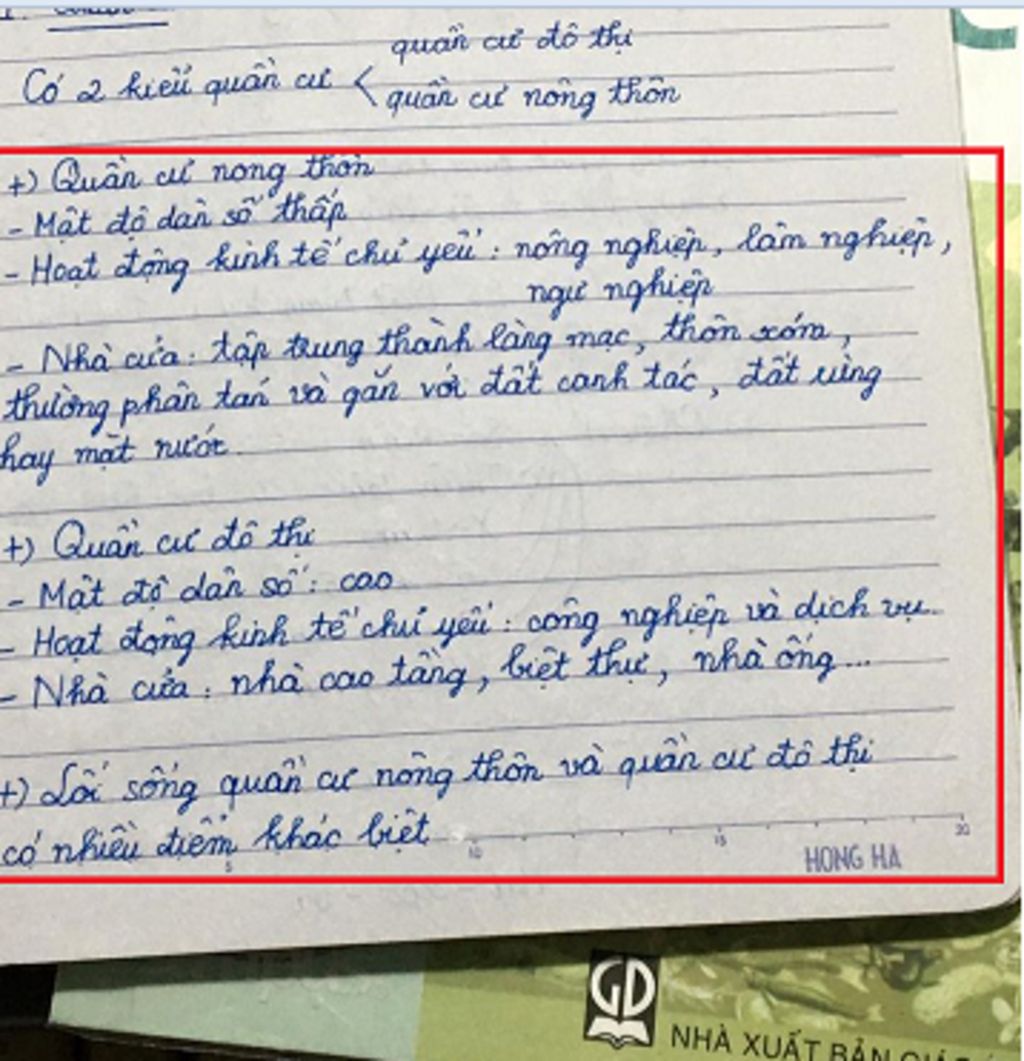 Có 2 kiểu quần cư < quần cư đô thị
quần cư nông thôn
+) Quần cư nông thôn
- Mật độ dân số thấp
- Hoạt động kinh tế chủ yếu : nông nghiệp, lâm nghiệp,
ngư nghiệp
- Nhà cửa : tập trung thành làng mạc, thôn xóm,
thường phân tán và gắn với đất canh tác, đất rừng
hay mặt nước.
+) Quần cư đô thị
- Mật độ dân số : cao
- Hoạt động kinh tế chủ yếu : công nghiệp và dịch vụ.
- Nhà cửa : nhà cao tầng, biệt thự, nhà ống...
+) Lối sống quần cư nông thôn và quần cư đô thị
có nhiều điểm khác biệt
5 10 15 20
HONG HA
GD
NHÀ XUẤT BẢN